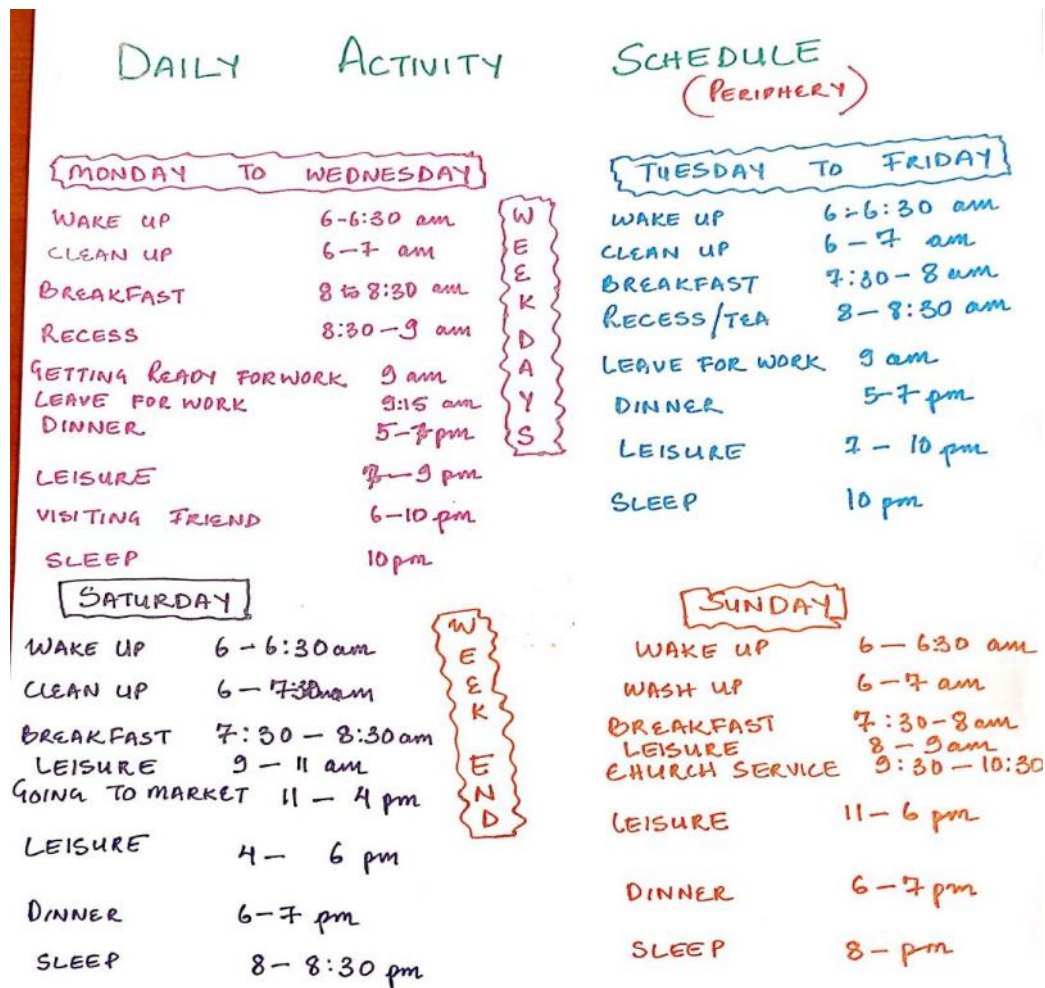 DAILY ACTIVITY SCHEDULE
(PERIPHERY)
MONDAY TO WEDNESDAY
WAKE UP 6-6:30 am
CLEAN UP 6-7 am
BREAKFAST 8 to 8:30 am
RECESS 8:30-9 am
GETTING READY FOR WORK 9 am
LEAVE FOR WORK 9:15 am
DINNER 5-7 pm
LEISURE 7-9 pm
VISITING FRIEND 6-10 pm
SLEEP 10 pm
WEEKDAYS
TUESDAY TO FRIDAY
WAKE UP 6:-6:30 am
CLEAN UP 6-7 am
BREAKFAST 7:30-8 am
RECESS/TEA 8-8:30 am
LEAVE FOR WORK 9 am
DINNER 5-7 pm
LEISURE 7-10 pm
SLEEP 10 pm
SATURDAY
WAKE UP 6-6:30 am
CLEAN UP 6-7:30 am
BREAKFAST 7:30-8:30 am
LEISURE 9-11 am
GOING TO MARKET 11-4 pm
LEISURE 4-6 pm
DINNER 6-7 pm
SLEEP 8-8:30 pm
WEEK END
SUNDAY
WAKE UP 6-630 am
WASH UP 6-7 am
BREAKFAST 7:30-8 am
LEISURE 8-9 am
CHURCH SERVICE 9:30-10:30
LEISURE 11-6 pm
DINNER 6-7 pm
SLEEP 8-pm